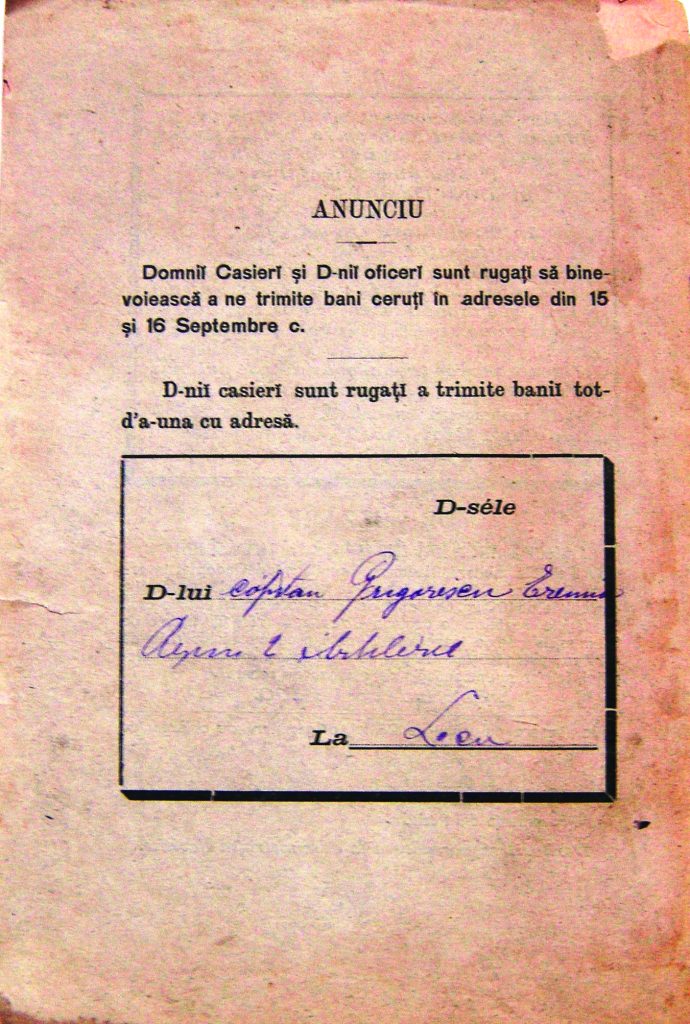 ANUNCIU
Domniĭ Casierĭ și D-niĭ oficerĭ sunt rugațĭ să bine-
voiească a ne trimite bani ceruțĭ în adresele din 15
și 16 Septembre c.
D-niĭ casierĭ sunt rugațĭ a trimite baniĭ tot-
d'a-una cu adresă.
D-séle
D-lui capitan Grigorescu Eremia
La Locu